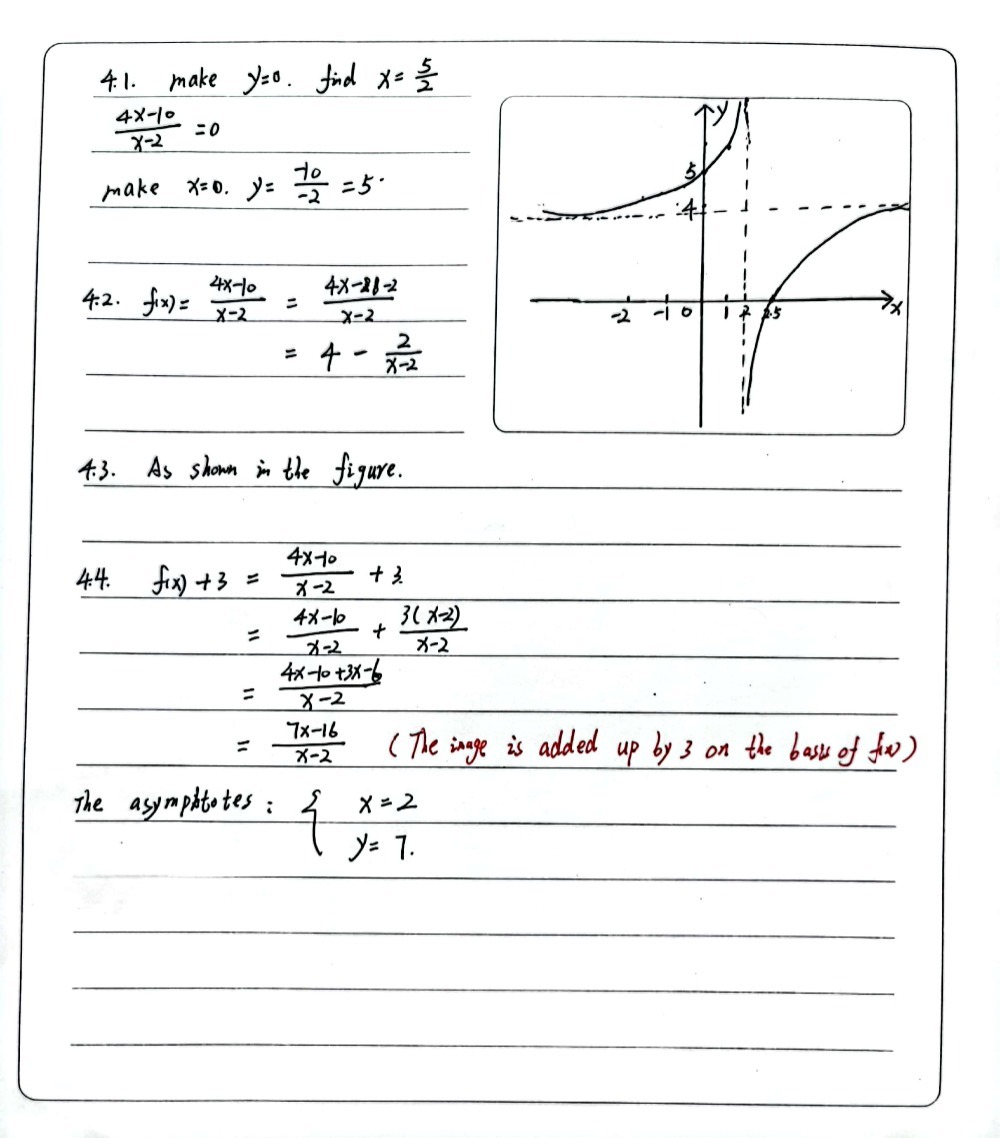 4.1. make y=0. find x= 5/2
(4x-10)/(x-2) =0
make x=0. y= -10/-2 =5.
4.2. f(x)= (4x-10)/(x-2) = (4x-8-2)/(x-2)
= 4 - 2/(x-2)
y
5
4
-2 -1 0 1 2 2.5 x
4.3. As shown in the figure.
4.4. f(x)+3 = (4x-10)/(x-2) +3.
= (4x-10)/(x-2) + 3(x-2)/(x-2)
= (4x-10+3x-6)/(x-2)
= (7x-16)/(x-2) (The image is added up by 3 on the basis of f(x))
The asymptotes: { x=2
y= 7.